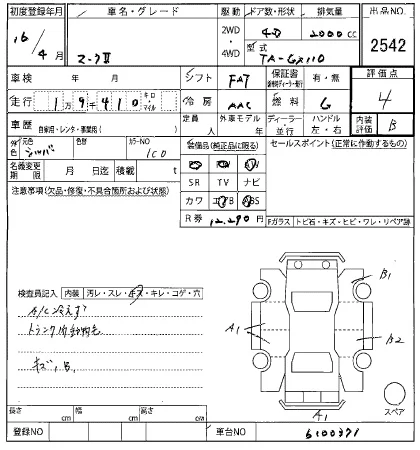 初度登録年月 車名・グレード 駆動 ドア数・形状 排気量 出品NO
16/4月 マークⅡ 2WD・4WD 4D 2000cc 2542
型式 TA-GX110
車検 年 月 シフト FAT 保証書 有・無 評価点 4
走行 1万9千410 キロ・マイル 冷房 AAC 燃料 G
車歴 自家用・レンタ・事業用( ) 定員 人 外車モデル 年 ディーラー・並行 ハンドル 左・右 内装評価 B
外色 元色 シルバー 色替 カラーNO 1C0 装備品(純正品に限る) セールスポイント(正常に作動するもの)
名義変更期限 月 日迄 積載 t
注意事項(欠品・修復・不具合箇所および状態)
SR TV ナビ
カワ エアB ABS
R券 12.290円 Fガラス トビ石・キズ・ヒビ・ワレ・リペア跡
B1
検査員記入 内装 汚レ・スレ・キズ・キレ・コゲ・穴
A/C冷えず
トランク内動物毛
キズ、B.
A1
B2
A1
スペア
長さ cm 幅 cm 高さ cm
登録NO 車台NO 6100371